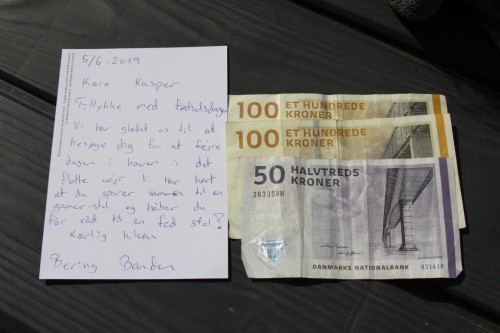 5/6-2019
Kære Kasper
Tillykke med fødselsdagen
Vi har glædet os til at
besøge dig for at fejre
dagen i haven i det
flotte vejr. Vi har hørt
at du sparer sammen til en
gamer-stol og håber du
får råd til en fed stol!
Kærlig hilsen
Bering Banden
100 ET HUNDREDE
KRONER
100 ET HUNDREDE
KRONER
50 HALVTREDS
KRONER
363358H
DANMARKS NATIONALBANK